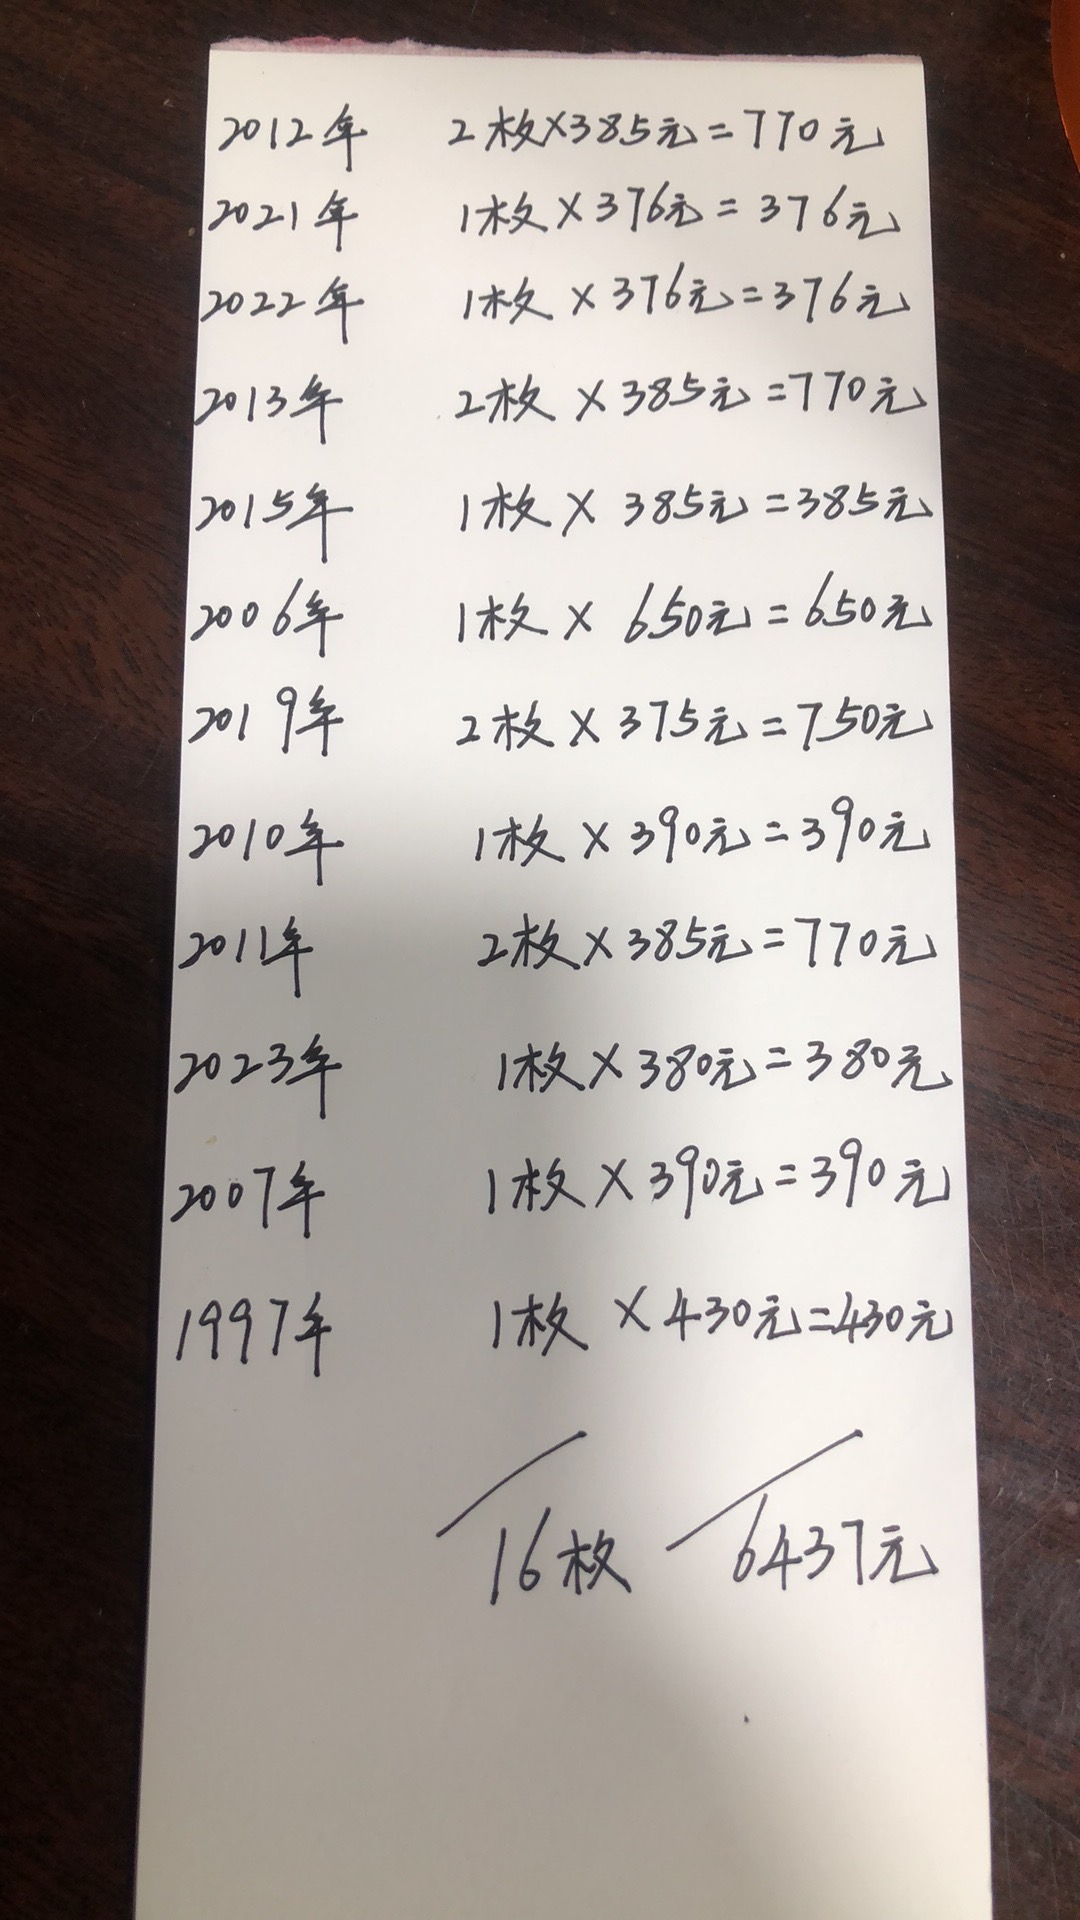 2012年 2枚×385元=770元
2021年 1枚×376元=376元
2022年 1枚×376元=376元
2013年 2枚×385元=770元
2015年 1枚×385元=385元
2006年 1枚×650元=650元
2019年 2枚×375元=750元
2010年 1枚×390元=390元
2011年 2枚×385元=770元
2023年 1枚×380元=380元
2007年 1枚×390元=390元
1997年 1枚×430元=430元
16枚 6437元